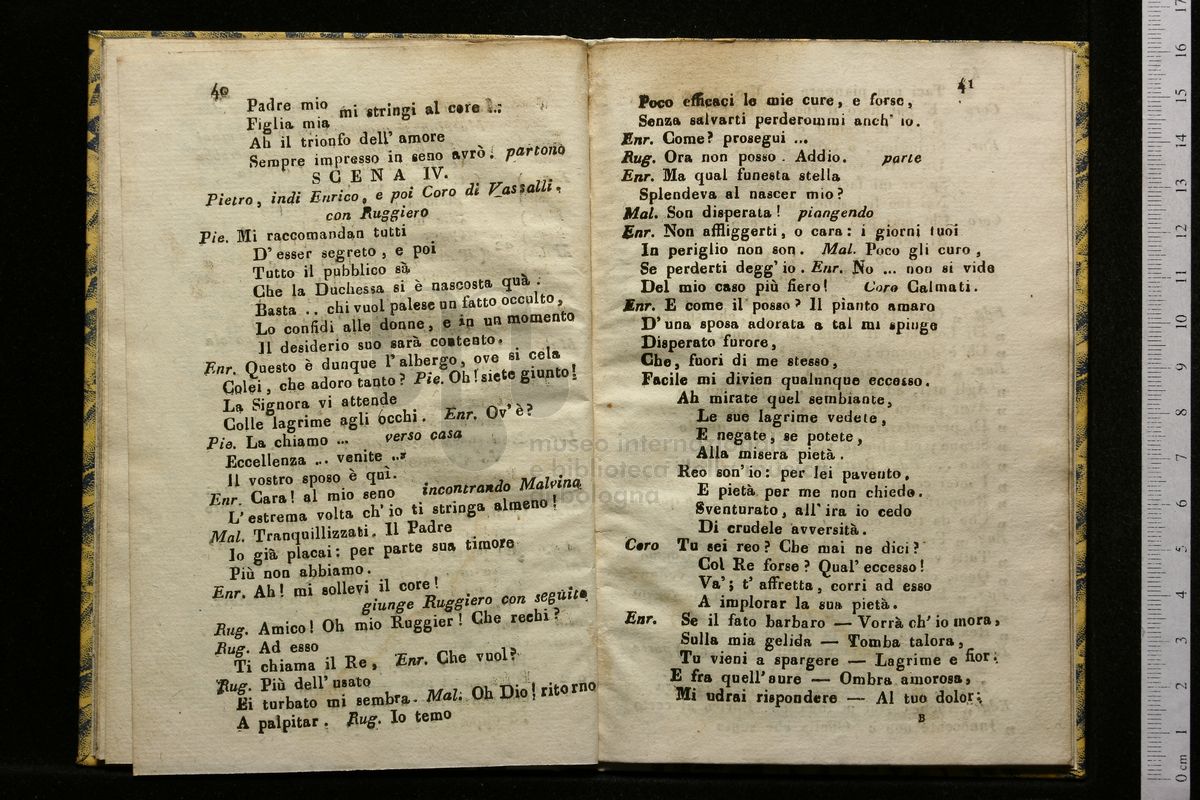 40
Padre mio mi stringi al core
Figlia mia
Ah il trionfo dell' amore
Sempre impresso in seno avrò. partono
SCENA IV.
Pietro, indi Enrico, e poi Coro di Vassalli,
con Ruggiero
Pie. Mi raccomandan tutti
D' esser segreto, e poi
Tutto il pubblico sà
Che la Duchessa si è nascosta quà.
Basta .. chi vuol palese un fatto occulto,
Lo confidi alle donne, e in un momento
Il desiderio suo sarà contento.
Enr. Questo è dunque l' albergo, ove si cela
Colei, che adoro tanto? Pie. Oh! siete giunto!
La Signora vi attende
Colle lagrime agli occhi. Enr. Ov' è?
Pie. La chiamo ... verso casa
Eccellenza ... venite ...
Il vostro sposo è quì.
Enr. Cara! al mio seno incontrando Malvina
L' estrema volta ch' io ti stringa almeno!
Mal. Tranquillizzati. Il Padre
Io già placai: per parte sua timore
Più non abbiamo.
Enr. Ah! mi sollevi il core!
giunge Ruggiero con seguito
Rug. Amico! Oh mio Ruggier! Che rechi?
Rug. Ad esso
Ti chiama il Re, Enr. Che vuol?
Rug. Più dell' usato
Ei turbato mi sembra. Mal. Oh Dio! ritorno
A palpitar. Rug. Io temo
41
Poco efficaci le mie cure, e forse,
Senza salvarti perderommi anch' io.
Enr. Come? prosegui ...
Rug. Ora non posso. Addio. parte
Enr. Ma qual funesta stella
Splendeva al nascer mio?
Mal. Son disperata! piangendo
Enr. Non affliggerti, o cara: i giorni tuoi
In periglio non son. Mal. Poco gli curo,
Se perderti degg' io. Enr. No ... non si vide
Del mio caso più fiero! Coro Calmati.
Enr. E come il posso? Il pianto amaro
D' una sposa adorata a tal mi spinge
Disperato furore,
Che, fuori di me stesso,
Facile mi divien qualunque eccesso.
Ah mirate quel sembiante,
Le sue lagrime vedete,
E negate, se potete,
Alla misera pietà.
Reo son' io: per lei pavento,
E pietà per me non chiedo.
Sventurato, all' ira io cedo
Di crudele avversità.
Coro Tu sei reo? Che mai ne dici?
Col Re forse? Qual' eccesso!
Va'; t' affretta, corri ad esso
A implorar la sua pietà.
Enr. Se il fato barbaro — Vorrà ch' io mora,
Sulla mia gelida — Tomba talora,
Tu vieni a spargere — Lagrime e fior:
E fra quell' aure — Ombra amorosa,
Mi udrai rispondere — Al tuo dolor;
B